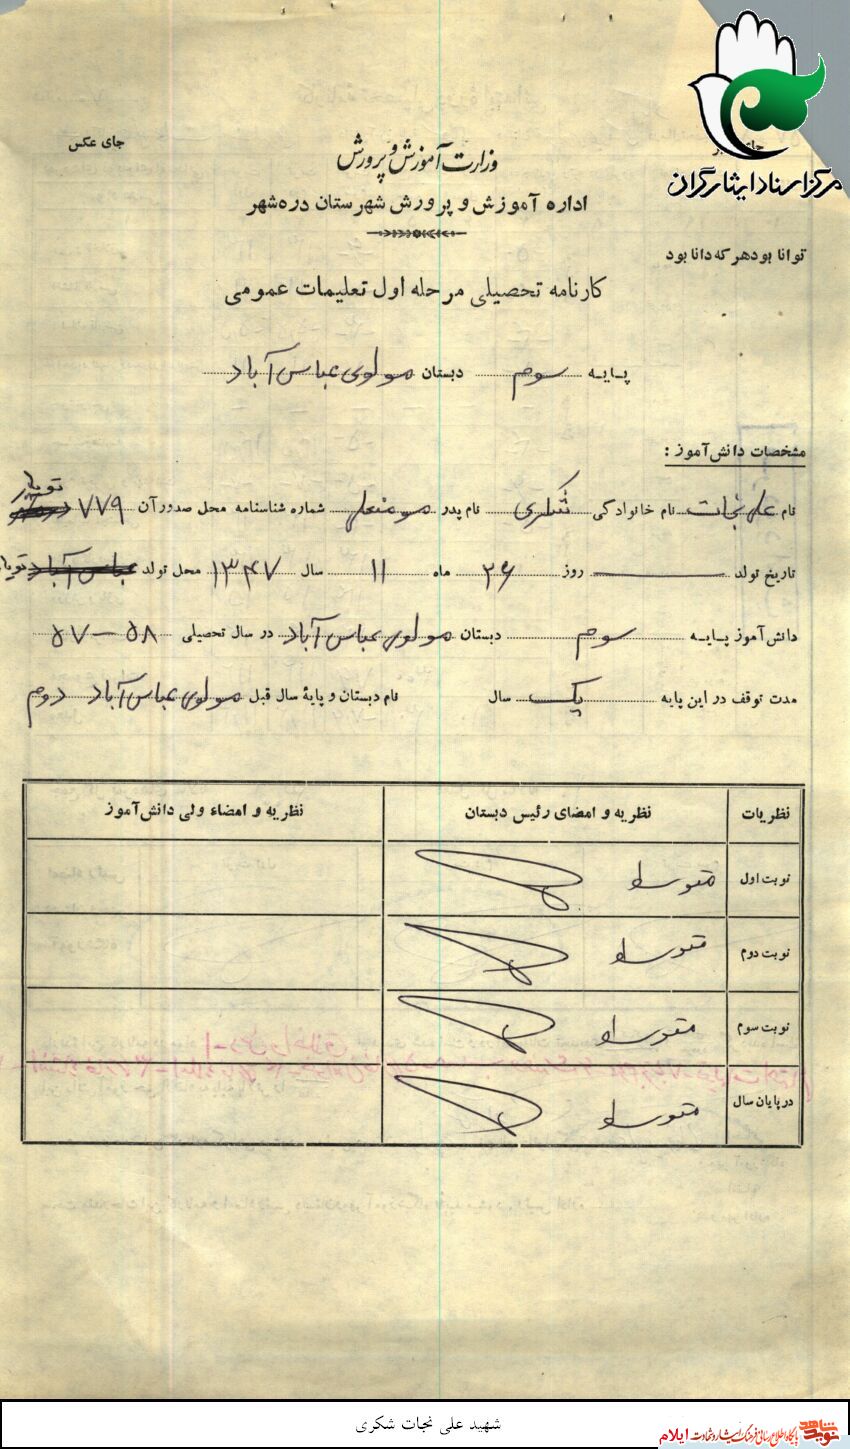 مرکز اسناد ایثارگران
جای عکس
وزارت آموزش و پرورش
اداره آموزش و پرورش شهرستان دره‌شهر
توانا بود هر که دانا بود
کارنامه تحصیلی مرحله اول تعلیمات عمومی
پایه سوم دبستان مولوی عباس آباد
مشخصات دانش‌آموز :
نام علی نجات نام خانوادگی شکری نام پدر شماره شناسنامه محل صدور آن ۷۷۹
تاریخ تولد روز ۲۶ ماه ۱۱ سال ۱۳۴۷ محل تولد عباس آباد
دانش‌آموز پایه سوم دبستان مولوی عباس آباد در سال تحصیلی ۵۸-۵۷
مدت توقف در این پایه یک سال نام دبستان و پایهٔ سال قبل مولوی عباس آباد دوم
نظریات نظریه و امضای رئیس دبستان نظریه و امضاء ولی دانش‌آموز
نوبت اول متوسط
نوبت دوم متوسط
نوبت سوم متوسط
در پایان سال متوسط
شهید علی نجات شکری
نوید شاهد پایگاه اطلاع رسانی فرهنگ ایثار و شهادت ایلام